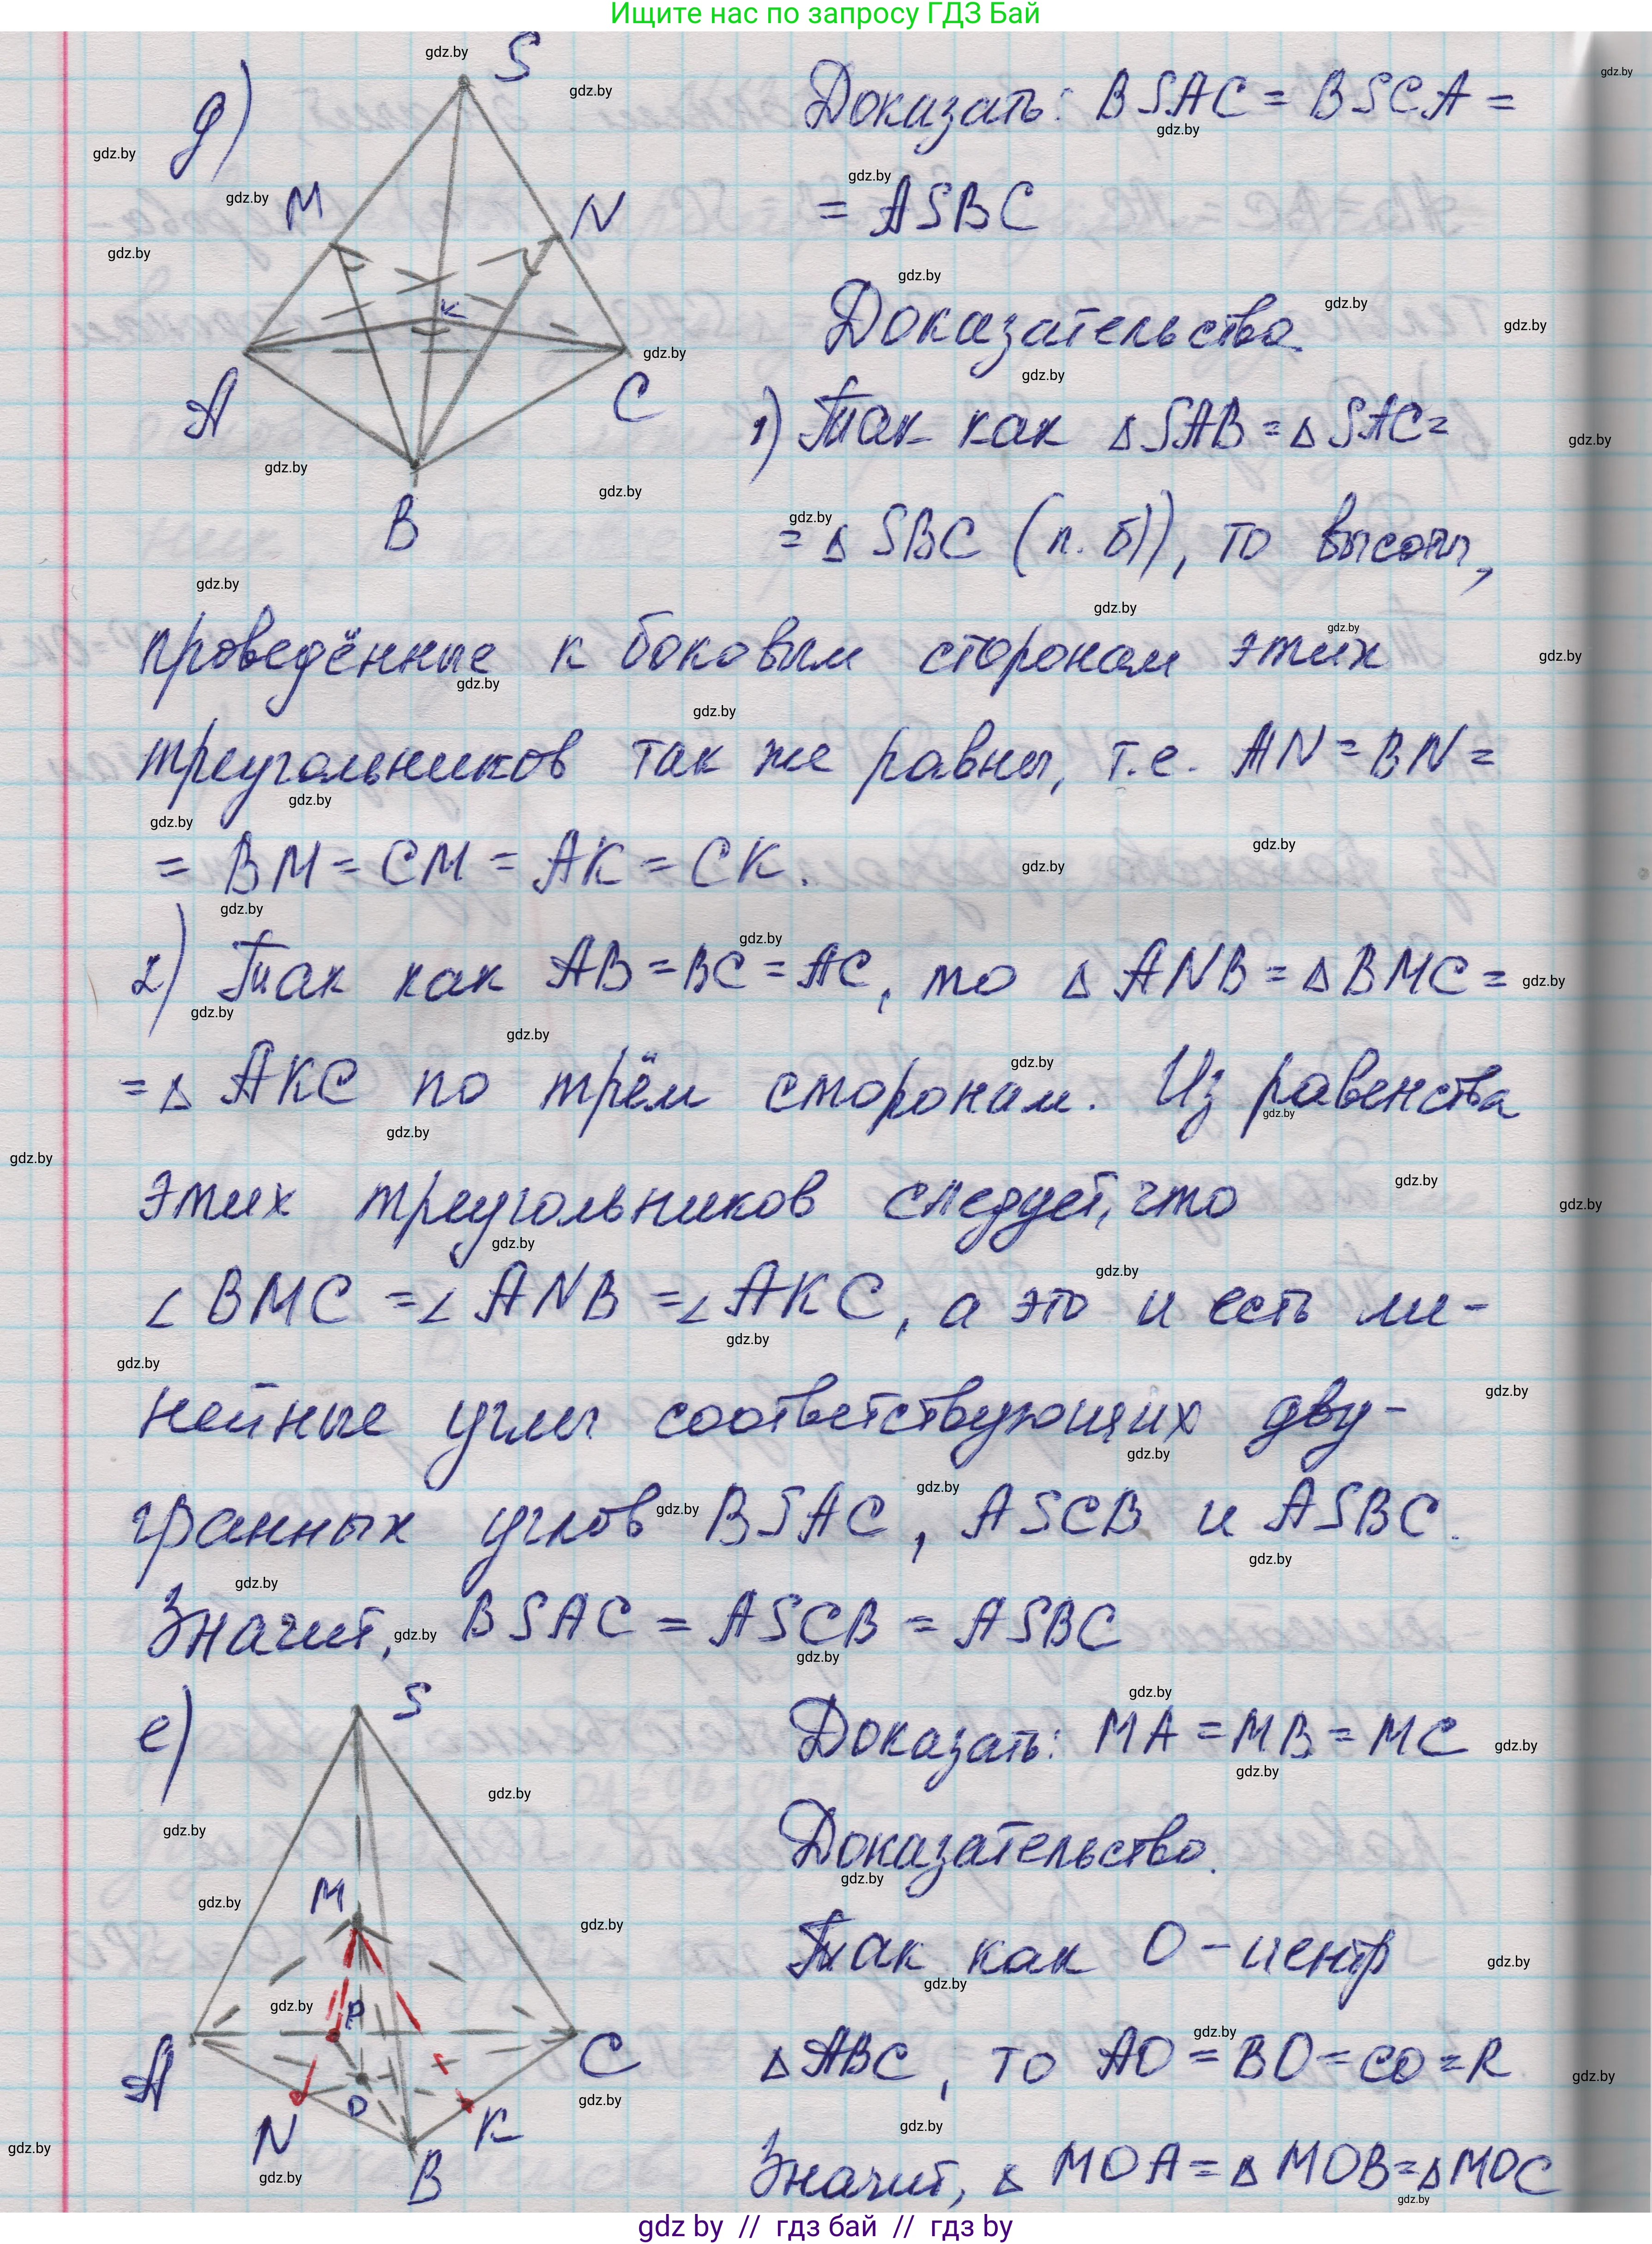 Ищите нас по запросу ГДЗ Бай
д)
S
M
N
K
A
C
B
Доказать: BSAC = BSCA =
= ASBC
Доказательство.
1) Так как △SAB = △SAC =
= △ SBC (п. б)), то высоты,
проведённые к боковым сторонам этих
треугольников так же равны, т.е. AN = BN =
= BM = CM = AK = CK.
2) Так как AB = BC = AC, то △ ANB = △ BMC =
= △ AKC по трём сторонам. Из равенства
этих треугольников следует, что
∠ BMC = ∠ ANB = ∠ AKC, а это и есть ли-
нейные углы соответствующих дву-
гранных углов BSAC, ASCB и ASBC.
Значит, BSAC = ASCB = ASBC
е)
S
M
P
A
C
O
N
K
B
Доказать: MA = MB = MC
Доказательство.
Так как O - центр
△ABC, то AO = BO = CO = R
Значит, △ MOA = △ MOB = △MOC
gdz by // гдз бай // гдз by